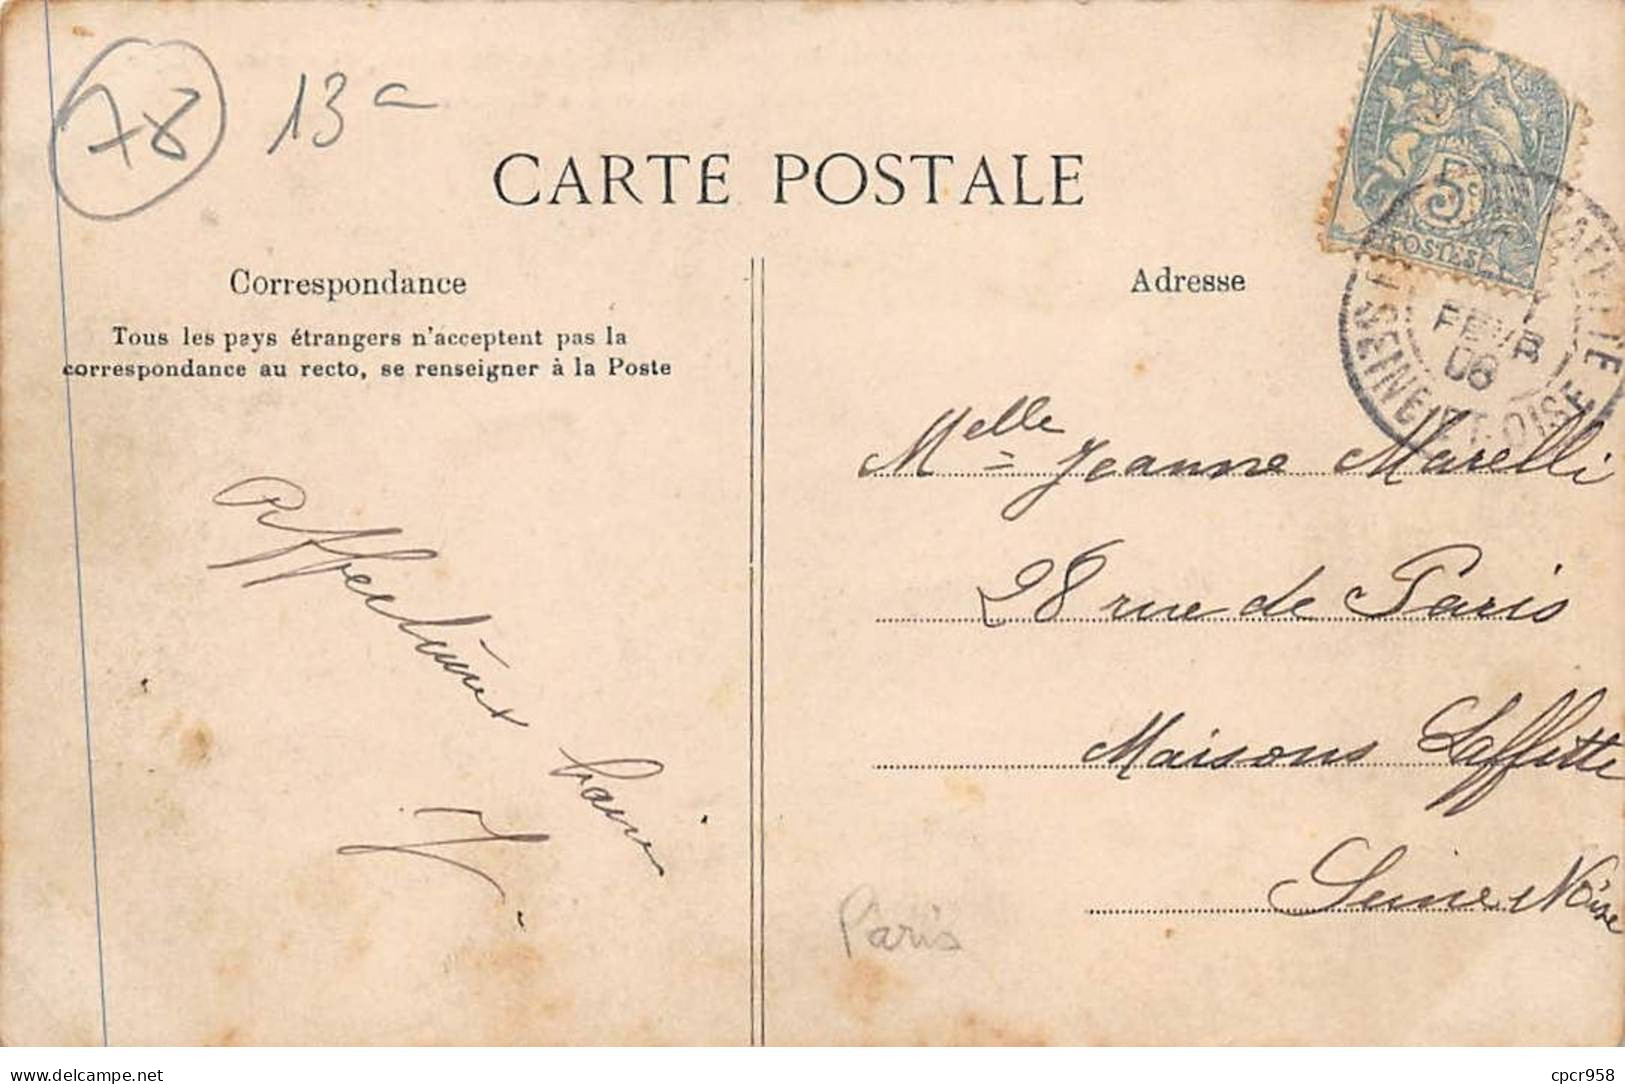 78 13
CARTE POSTALE
Correspondance
Tous les pays étrangers n'acceptent pas la
correspondance au recto, se renseigner à la Poste
Adresse
5c
POSTES
FEVR
06
SEINE-ET-OISE
Melle Jeanne Marelli
28 rue de Paris
Maisons Laffitte
Seine & Oise
Affectueux
Paris
delcampe.net
cpcr958